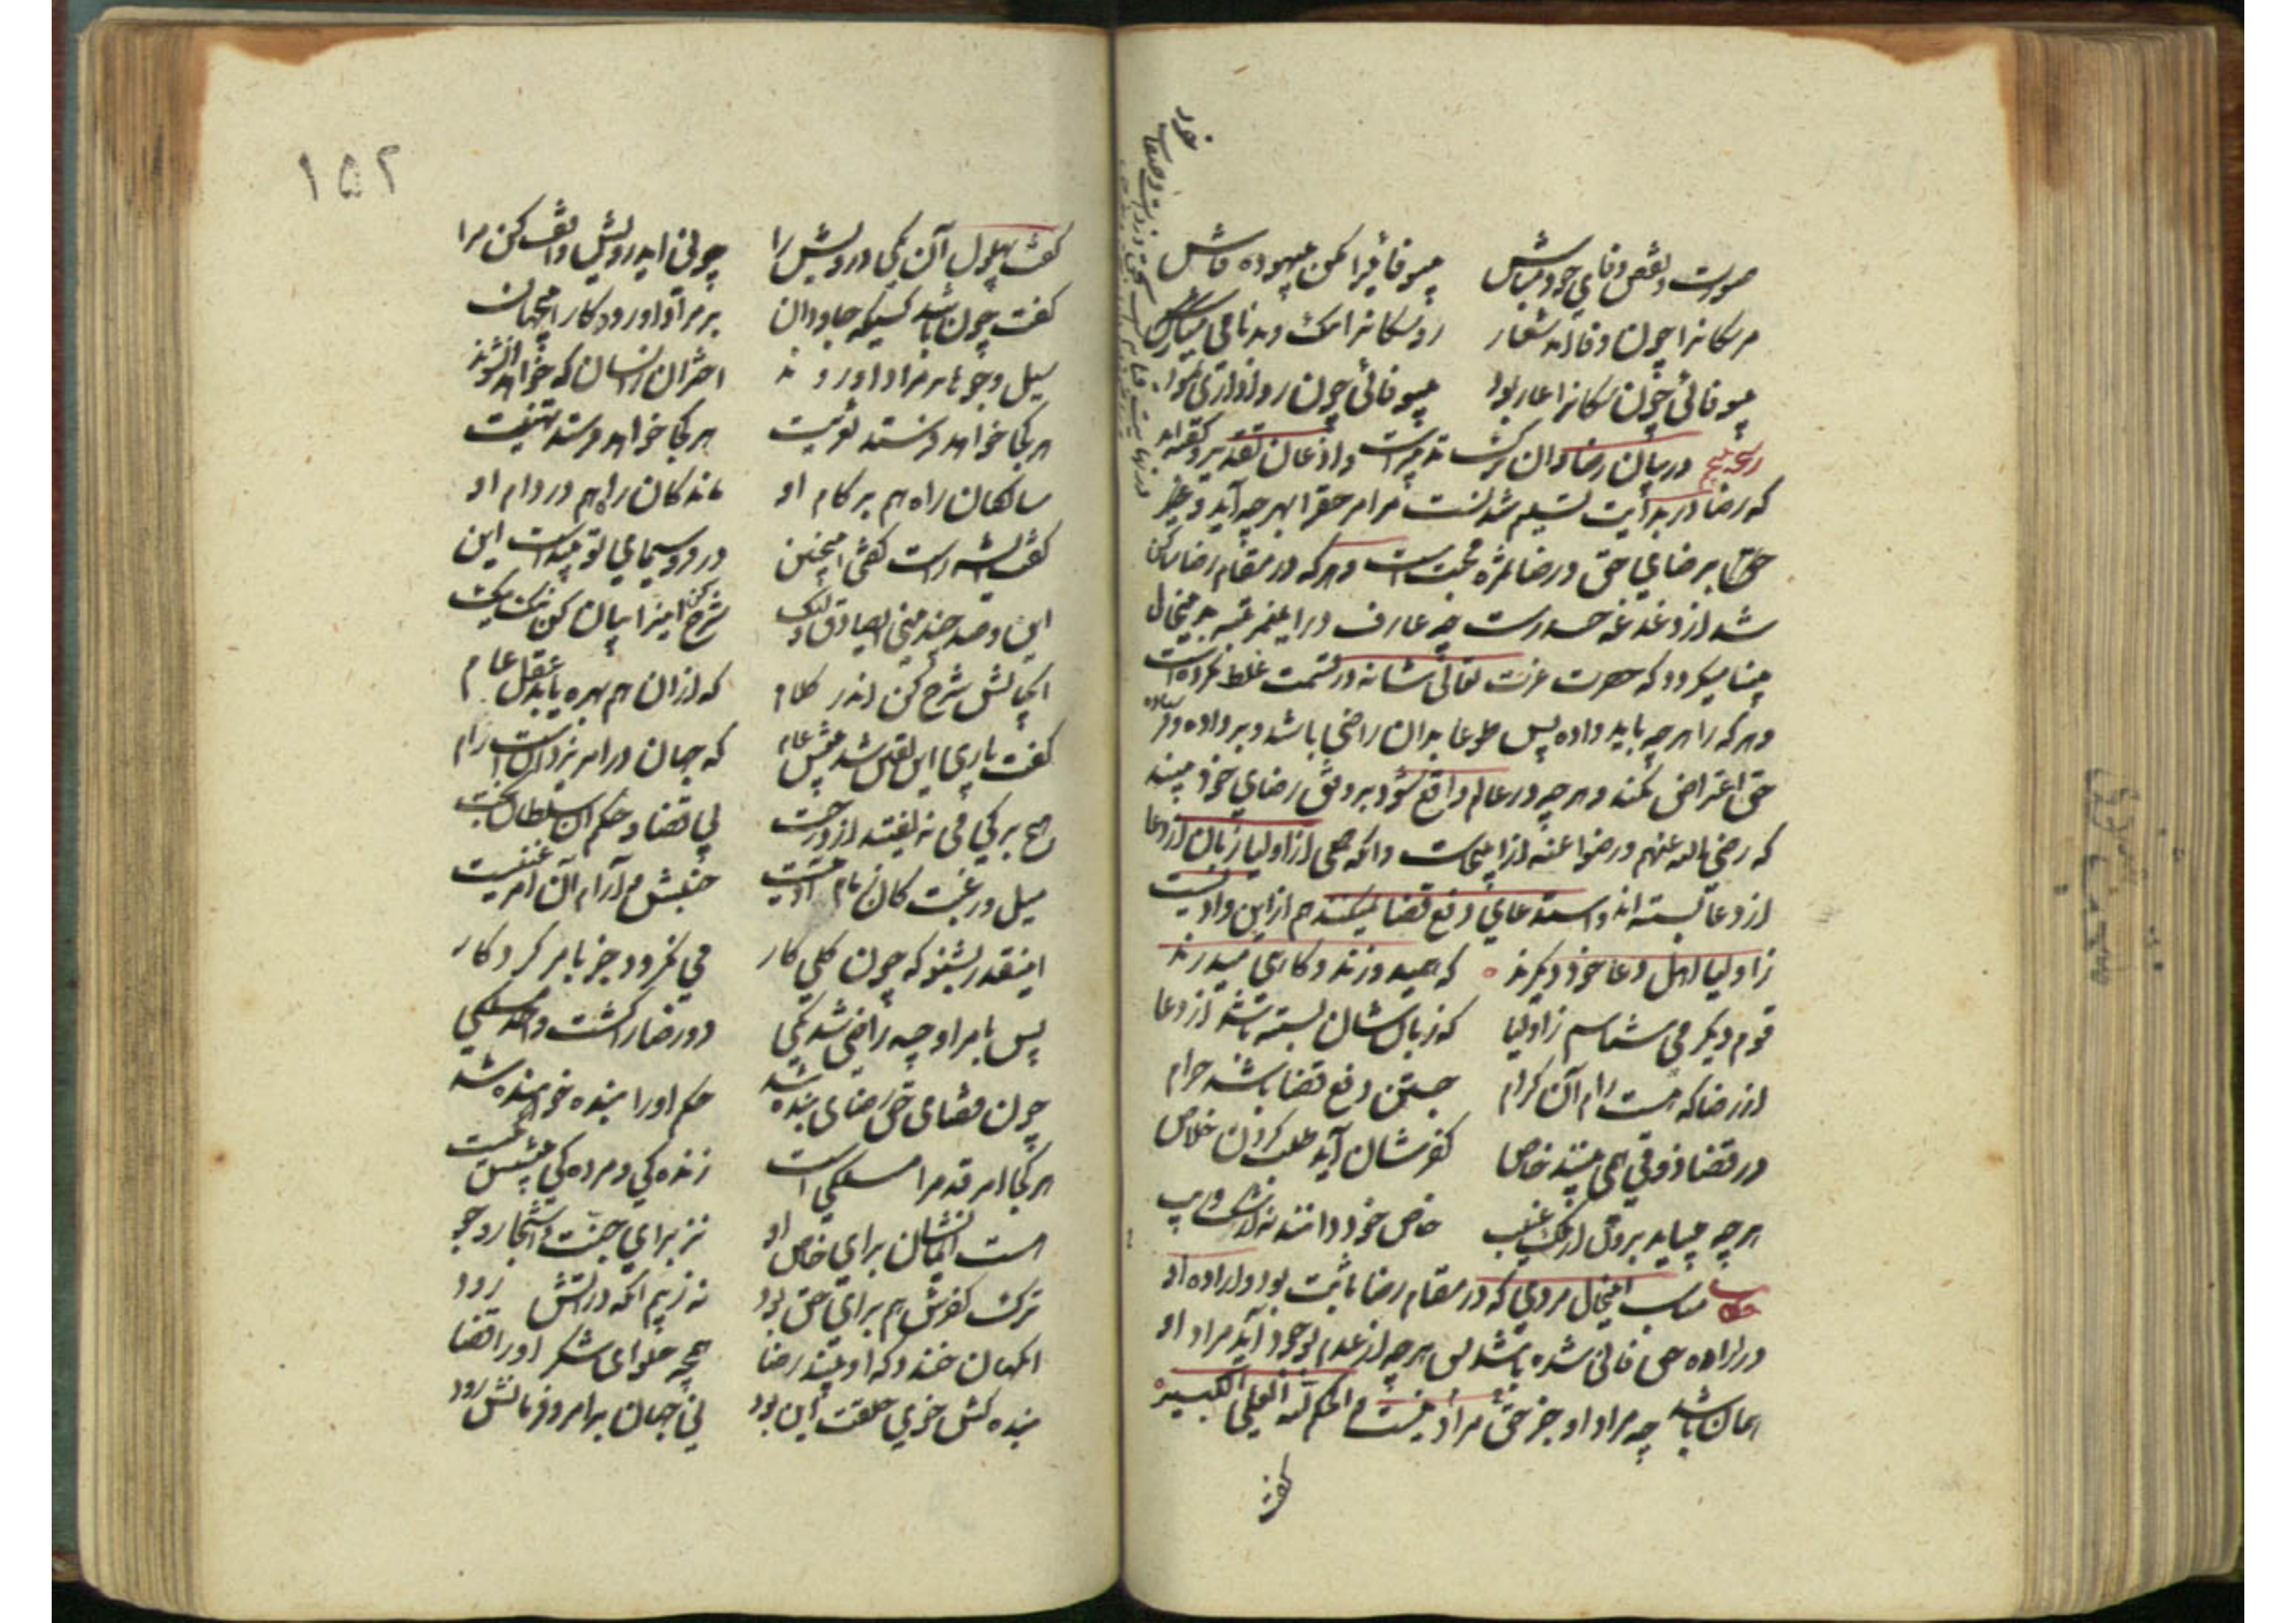 صورت و نقض وفای خود مباش
بیوفائیرا مکن بیهوده فاش
مر سگانرا چون وفا آمد شعار
رو سگانرا ننگ و بدنامی میار
بیوفائی چون سگانرا عار بود
بیوفائی چون روا داری نمود
در بیان رضا و آن ترک تدبیرست و اذعان تقدیر و گفته‌اند
که رضا در بدایت تسلیم شدنست مر امر حق را بهر چه آید و
برضای حق و رضا ثمره محبت است و هر که در مقام رضا ساکن
شد از دغدغه حسد رست چه عارف را
بینا میگردد که حضرت عزت تعالی شانه در قسمت غلط نکرده است
و هر که را هر چه باید داده پس طوعا بدان راضی باشد و بر داده و نداده
حق اعتراض نکند و هر چه در عالم واقع شود بر وفق رضای خود بیند
که رضی الله عنهم و رضوا عنه از اینجاست و آنکه جمعی از اولیا زبان از دعا
از دعا بسته‌اند و استدعای دفع قضا نمیکنند هم از این وادیست
ز اولیا اهل دعا خود دیگرند
که همیدوزند و گاهی میدرند
قوم دیگر می شناسم ز اولیا
که زبانشان بسته باشد از دعا
از رضا که هست رام آن کرام
جستن دفع قضا باشد حرام
در قضا ذوقی همی بینند خاص
کفرشان آید طلب کردن خلاص
هر چه میاید برون از ملک غیب
خاص خود دانند نه از شک و ریب
حکایت مناسب اینحال مردی که در مقام رضا ثابت بود و اراده او
در اراده حق فانی شده باشد پس هر چه از عدم بوجود آید مراد او
همان باشد چه مراد او جز حق مراد نیست و الحکم لله العلی الکبیر
گفت
۱۵۲
گفت بهلول آن یکی درویش را
چونی ای درویش واقف کن مرا
گفت چون باشد کسیکه جاودان
بر مراد او رود کار جهان
سیل و جوها بر مراد او روند
اختران زانسان که خواهد آن شوند
هر کجا خواهد فرستد تعزیت
هر کجا خواهد فرستد تهنیت
سالکان راه هم بر کام او
ماندگان راه هم در دام او
گفت ای شه راست گفتی اینچنین
در فر و سیمای تو پیداست این
این و صد چندینی ای صادق ولیک
شرح کن اینرا بیان کن نیک نیک
آنچنانش شرح کن اندر کلام
که از آن هم بهره یابد عقل عام
گفت باری این یقین شد پیش عام
که جهان در امر یزدانست رام
هیچ برگی می نیفتد از درخت
بی قضا و حکم آن سلطان بخت
میل و رغبت کان زمام آدمیست
جنبش و آرام آن امر غنیست
اینقدر بشنو که چون کلی کار
می نگردد جز بامر کردگار
چون قضای حق رضای بنده شد
حکم او را بنده خواهنده شد
هر کجا امر قدم را مسلکی است
زندگی و مردگی پیشش یکیست
هست ایمانش برای خاص او
نز برای جنت و اشجار و جو
ترک کفرش هم برای حق بود
نه ز بیم آنکه در آتش رود
آنگهان خندد که او بیند رضا
همچو حلوای شکر او را قضا
بنده کش خوی و خلقت این بود
نی جهان بر امر و فرمانش رود